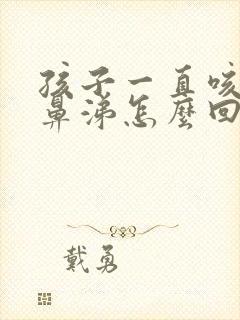 孩子一直咳
鼻涕怎麼回
戴勇